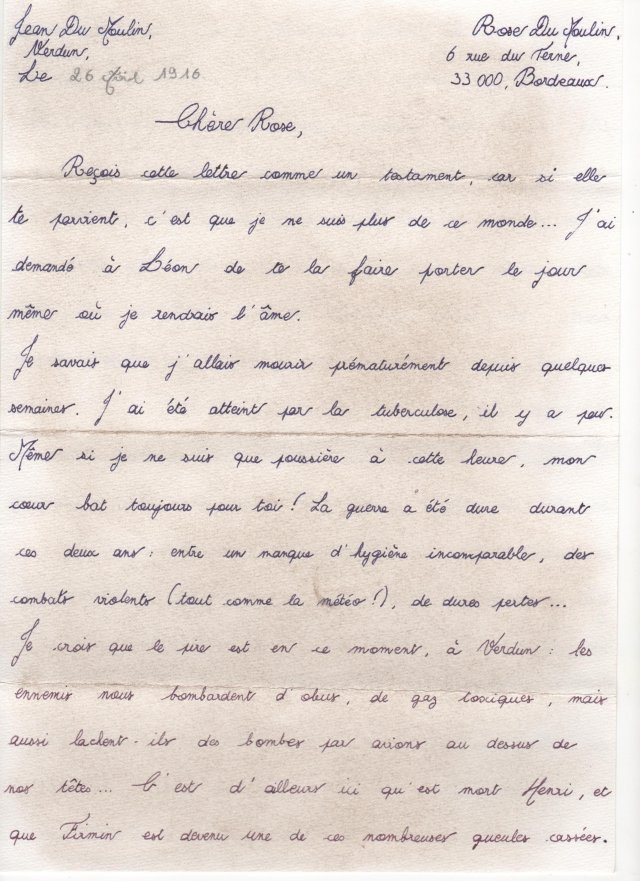 Jean Du Moulin,
Verdun,
Le 26 Avril 1916
Rose Du Moulin,
6 rue du Terne,
33 000, Bordeaux.
Chère Rose,
Reçois cette lettre comme un testament, car si elle
te parvient, c'est que je ne suis plus de ce monde... J'ai
demandé à Léon de te la faire porter le jour
même où je rendrais l'âme.
Je savais que j'allais mourir prématurément depuis quelques
semaines. J'ai été atteint par la tuberculose, il y a peu.
Même si je ne suis que poussière à cette heure, mon
cœur bat toujours pour toi! La guerre a été dure durant
ces deux ans: entre un manque d'hygiène incomparable, des
combats violents (tout comme la météo!), de dures pertes...
Je crois que le pire est en ce moment, à Verdun: les
ennemis nous bombardent d'obus, de gaz toxiques, mais
aussi lachent-ils des bombes par avions au dessus de
nos têtes... C'est d'ailleurs ici qu'est mort Henri, et
que Firmin est devenu une de ces nombreuses gueules cassées.